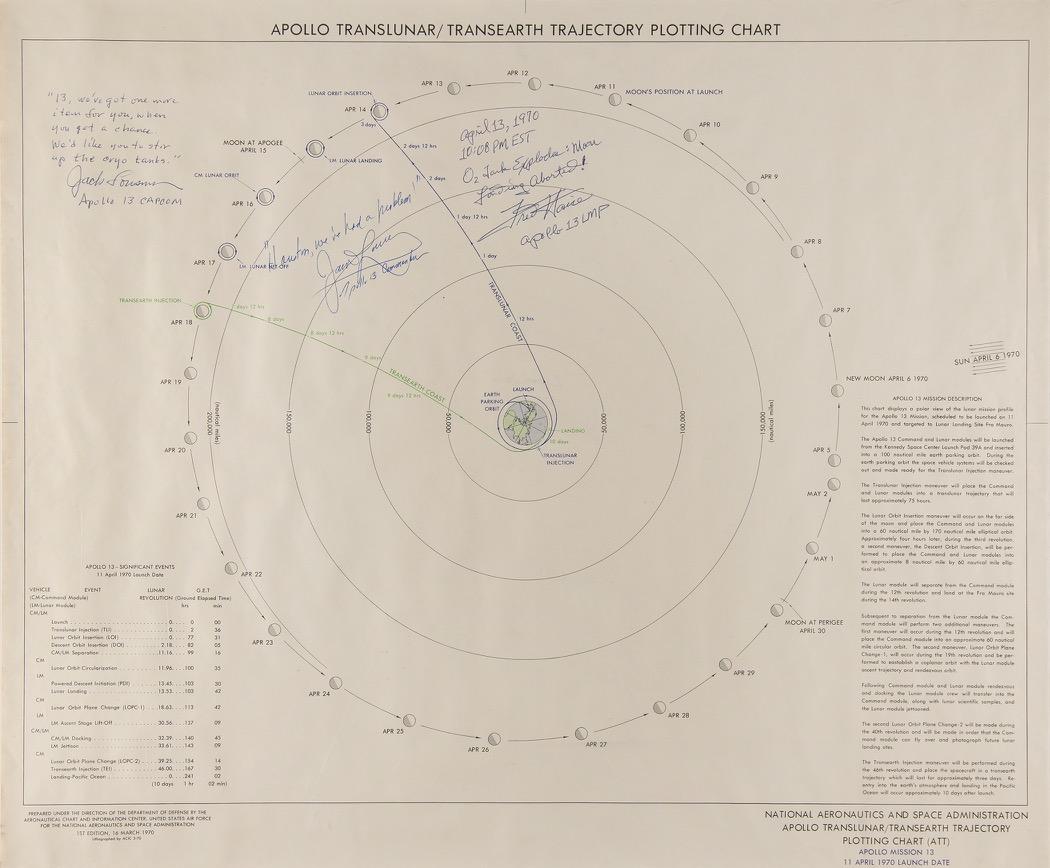 APOLLO TRANSLUNAR/TRANSEARTH TRAJECTORY PLOTTING CHART
"13, we've got one more
item for you, when
you get a chance.
We'd like you to stir
up the cryo tanks."
Jack Lousma
Apollo 13 CAPCOM
April 13, 1970
10:08 PM EST
O2 Tank Explodes: Moon
Landing Aborted!
Fred Haise
Apollo 13 LMP
"Houston, we've had a problem"
Apollo 13 Commander
LUNAR ORBIT INSERTION
APR 14
APR 13
APR 12
APR 11
MOON'S POSITION AT LAUNCH
APR 10
APR 9
APR 8
APR 7
SUN APRIL 6 1970
NEW MOON APRIL 6 1970
APR 5
MAY 2
MAY 1
MOON AT PERIGEE
APRIL 30
APR 29
APR 28
APR 27
APR 26
APR 25
APR 24
APR 23
APR 22
APR 21
APR 20
APR 19
APR 18
TRANSEARTH INJECTION
APR 17
LM LUNAR
APR 16
CM LUNAR ORBIT
MOON AT APOGEE
APRIL 15
LM LUNAR LANDING
3 days
2 days 12 hrs
2 days
1 day 12 hrs
1 day
TRANSLUNAR COAST
12 hrs
days 12 hrs
8 days
8 days 12 hrs
9 days
TRANSEARTH COAST
9 days 12 hrs
LAUNCH
EARTH
PARKING
ORBIT
LANDING
10 days
TRANSLUNAR
INJECTION
200,000
(nautical miles)
150,000
100,000
50,000
50,000
100,000
150,000
(nautical miles)
APOLLO 13 MISSION DESCRIPTION
This chart displays a polar view of the lunar mission profile
for the Apollo 13 Mission, scheduled to be launched on 11
April 1970 and targeted to Lunar Landing Site Fra Mauro.
The Apollo 13 Command and Lunar modules will be launched
from the Kennedy Space Center Launch Pad 39A and inserted
into a 100 nautical mile earth parking orbit. During the
earth parking orbit the space vehicle systems will be checked
out and made ready for the Translunar Injection maneuver.
The Translunar Injection maneuver will place the Command
and Lunar modules into a translunar trajectory that will
last approximately 75 hours.
The Lunar Orbit Insertion maneuver will occur on the far side
of the moon and place the Command and Lunar modules
into a 60 nautical mile by 170 nautical mile elliptical orbit.
Approximately four hours later, during the third revolution,
a second maneuver, the Descent Orbit Insertion, will be per-
formed to place the Command and Lunar modules into
an approximate 8 nautical mile by 60 nautical mile ellip-
tical orbit.
The Lunar module will separate from the Command module
during the 12th revolution and land at the Fra Mauro site
during the 14th revolution.
Subsequent to separation from the Lunar module the Com-
mand module will perform two additional maneuvers. The
first maneuver will occur during the 12th revolution and will
place the Command module into an approximate 60 nautical
mile circular orbit. The second maneuver, Lunar Orbit Plane
Change-1, will occur during the 19th revolution and be per-
formed to eastablish a coplanar orbit with the Lunar module
ascent trajectory and rendezvous orbit.
Following Command module and Lunar module rendezvous
and docking the Lunar module crew will transfer into the
Command module, along with lunar scientific samples, and
the Lunar module jettisoned.
The second Lunar Orbit Plane Change-2 will be made during
the 40th revolution and will be made in order that the Com-
mand module can fly over and photograph future lunar
landing sites.
The Transearth Injection maneuver will be performed during
the 46th revolution and place the spacecraft in a transearth
trajectory which will last for approximately three days. Re-
entry into the earth's atmosphere and landing in the Pacific
Ocean will occur approximately 10 days after launch.
APOLLO 13 - SIGNIFICANT EVENTS
11 April 1970 Launch Date
VEHICLE EVENT LUNAR G.E.T
(CM-Command Module) REVOLUTION (Ground Elapsed Time)
(LM-Lunar Module) hrs min
CM/LM
Launch 0 0 00
Translunar Injection (TLI) 0 2 36
Lunar Orbit Insertion (LOI) 0 77 31
Descent Orbit Insertion (DOI) 2.18 82 05
CM/LM Separation 11.16 99 16
CM
Lunar Orbit Circularization 11.96 100 35
LM
Powered Descent Initiation (PDI) 13.45 103 30
Lunar Landing 13.53 103 42
CM
Lunar Orbit Plane Change (LOPC-1) 18.63 113 42
LM
LM Ascent Stage Lift-Off 30.56 137 09
CM/LM
CM/LM Docking 32.39 140 45
LM Jettison 33.61 143 09
CM
Lunar Orbit Plane Change (LOPC-2) 39.25 154 14
Transearth Injection (TEI) 46.00 167 30
Landing-Pacific Ocean 0 241 02
(10 days 1 hr 02 min)
PREPARED UNDER THE DIRECTION OF THE DEPARTMENT OF DEFENSE BY THE
AERONAUTICAL CHART AND INFORMATION CENTER, UNITED STATES AIR FORCE
FOR THE NATIONAL AERONAUTICS AND SPACE ADMINISTRATION
1ST EDITION, 16 MARCH 1970
Lithographed by ACIC 3-70
NATIONAL AERONAUTICS AND SPACE ADMINISTRATION
APOLLO TRANSLUNAR/TRANSEARTH TRAJECTORY
PLOTTING CHART (ATT)
APOLLO MISSION 13
11 APRIL 1970 LAUNCH DATE